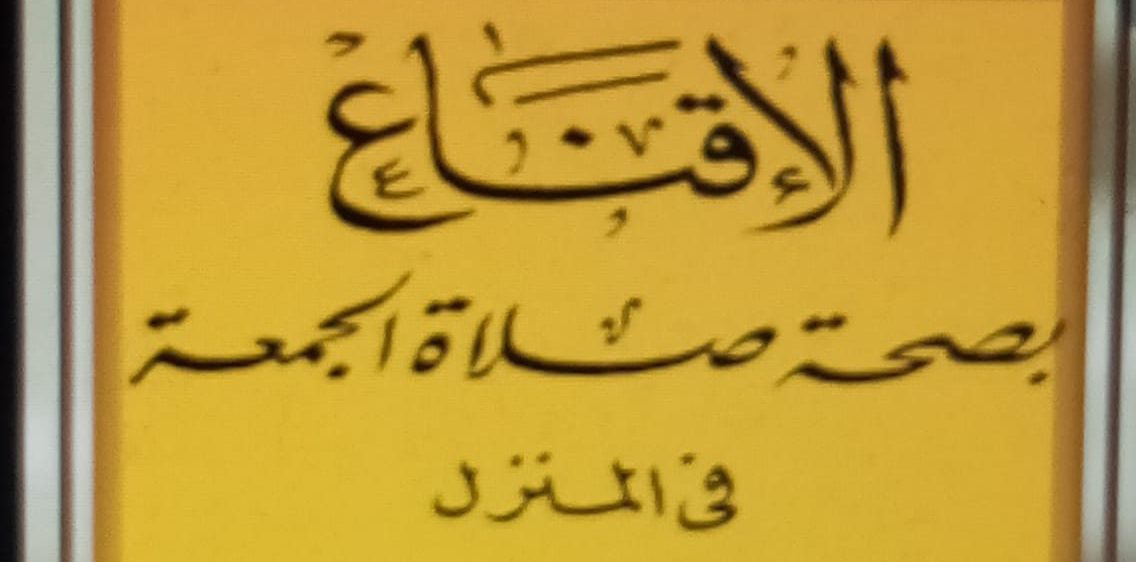 الإقناع
بصحة صلاة الجمعة
في المنزل